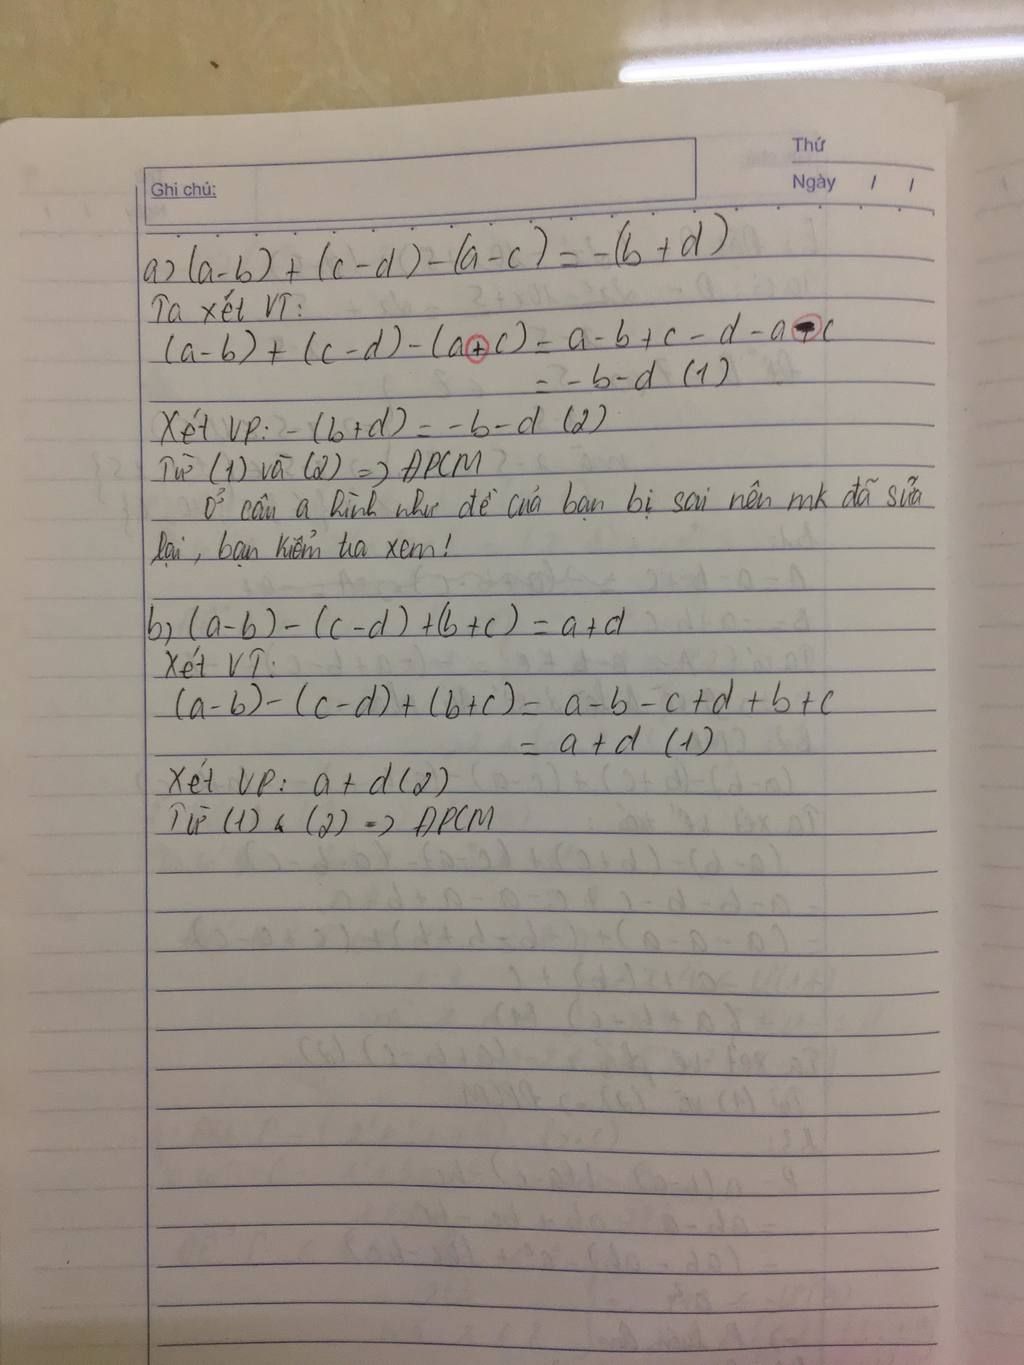 Thứ
Ghi chú:
Ngày / /
a) (a-b) + (c-d) - (a-c) = -(b+d)
Ta xét VT:
(a-b) + (c-d) - (a+c) = a-b+c-d-a-c
= -b-d (1)
Xét VP: -(b+d) = -b-d (2)
Từ (1) và (2) => ĐPCM
Ở câu a hình như đề của bạn bị sai nên mk đã sửa
lại, bạn kiểm tra xem!
b, (a-b) - (c-d) + (b+c) = a+d
Xét VT:
(a-b) - (c-d) + (b+c) = a-b-c+d+b+c
= a+d (1)
Xét VP: a+d (2)
Từ (1) & (2) => ĐPCM